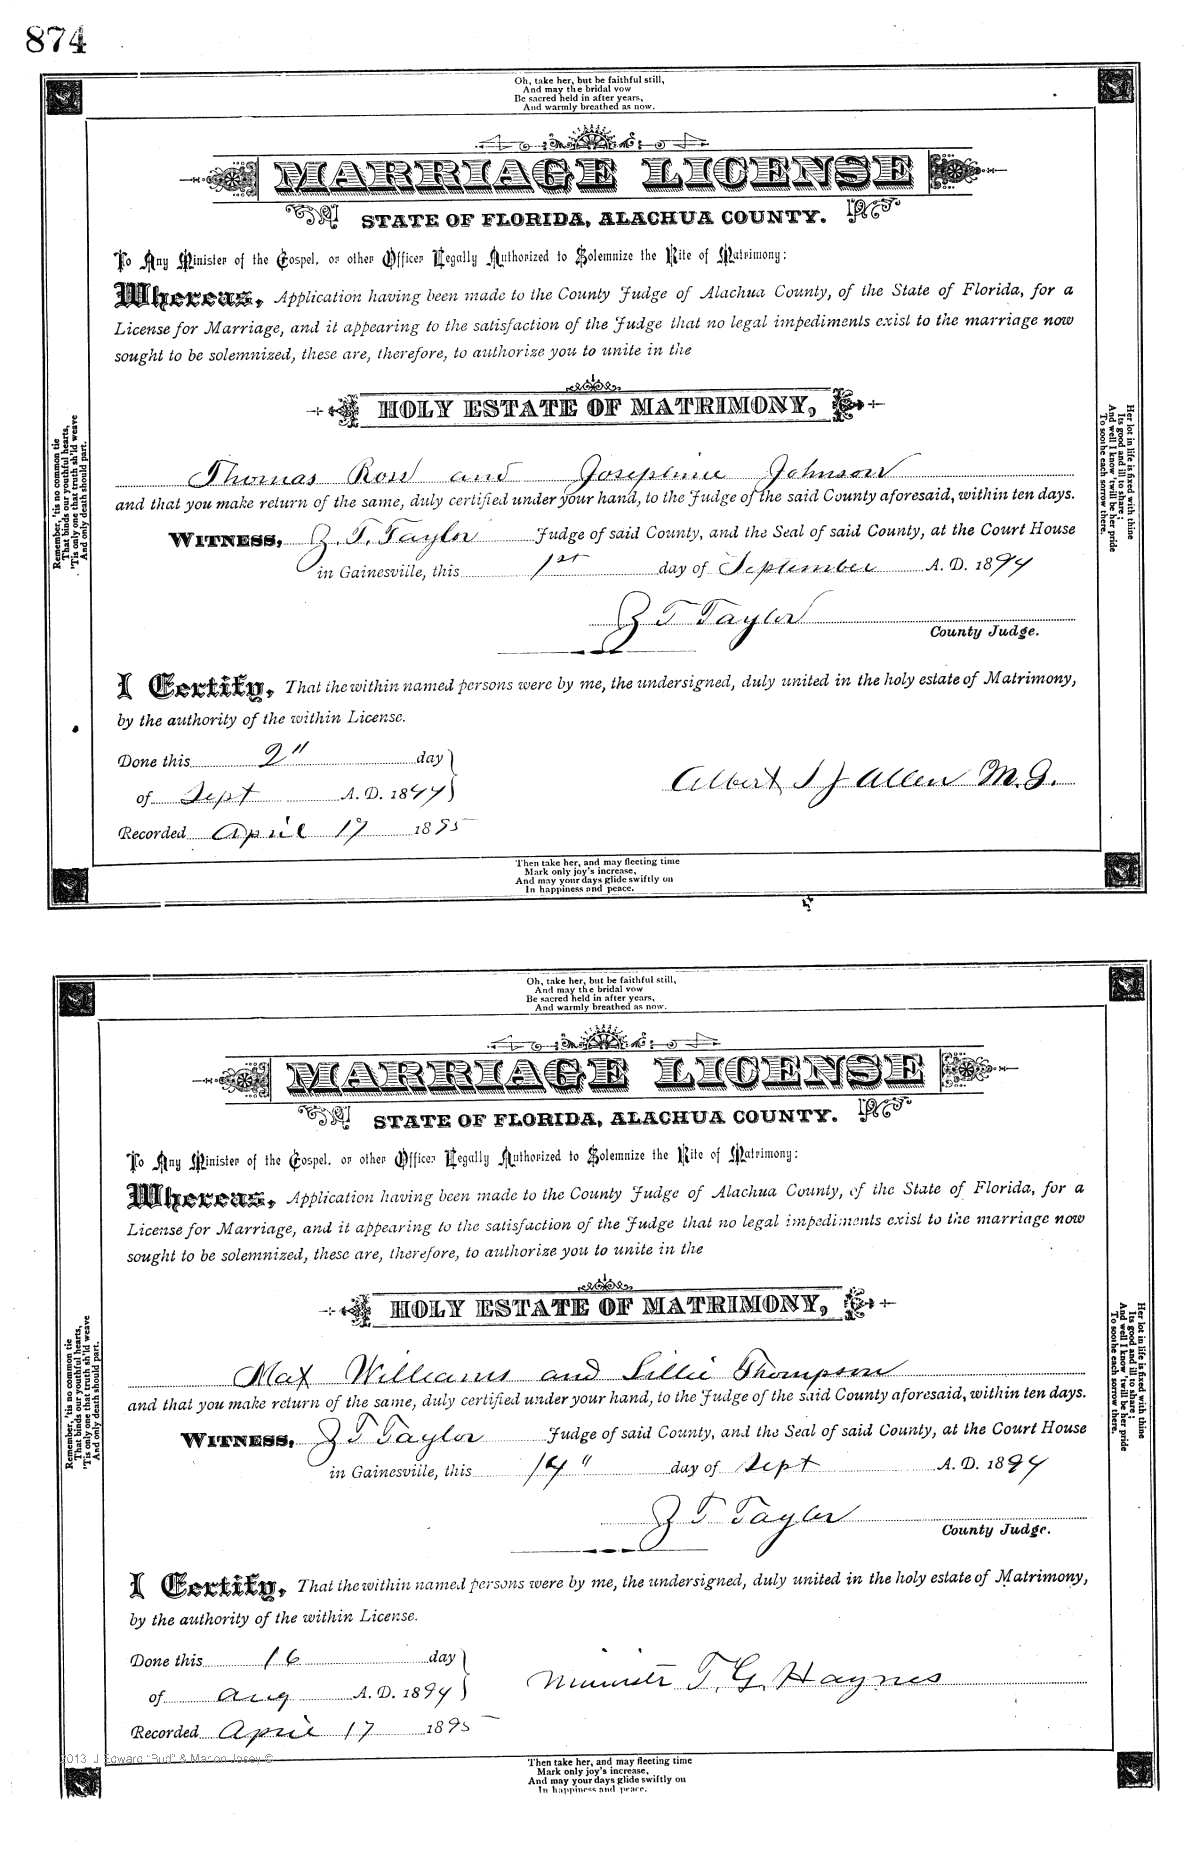 874
Oh, take her, but be faithful still,
And may the bridal vow
Be sacred held in after years,
And warmly breathed as now.
MARRIAGE LICENSE
STATE OF FLORIDA, ALACHUA COUNTY.
To Any Minister of the Gospel, or other Officer Legally Authorized to Solemnize the Rite of Matrimony:
Whereas, Application having been made to the County Judge of Alachua County, of the State of Florida, for a
License for Marriage, and it appearing to the satisfaction of the Judge that no legal impediments exist to the marriage now
sought to be solemnized, these are, therefore, to authorize you to unite in the
HOLY ESTATE OF MATRIMONY,
Thomas Row and Josephine Johnson
and that you make return of the same, duly certified under your hand, to the Judge of the said County aforesaid, within ten days.
WITNESS, Z. T. Taylor Judge of said County, and the Seal of said County, at the Court House
in Gainesville, this 1st day of September A. D. 1894
Z T Taylor
County Judge.
I Certify, That the within named persons were by me, the undersigned, duly united in the holy estate of Matrimony,
by the authority of the within License.
Done this 2" day
of Sept A. D. 1894
Albert S J Allen M. G.
Recorded April 17 1895
Remember, 'tis no common tie
That binds our youthful hearts,
'Tis only one that truth sh'ld weave
And only death should part.
Her lot in life is fixed with thine
Its good and ill to share;
And well I know 'twill be her pride
To soothe each sorrow there.
Then take her, and may fleeting time
Mark only joy's increase,
And may your days glide swiftly on
In happiness and peace.
Oh, take her, but be faithful still,
And may the bridal vow
Be sacred held in after years,
And warmly breathed as now.
MARRIAGE LICENSE
STATE OF FLORIDA, ALACHUA COUNTY.
To Any Minister of the Gospel, or other Officer Legally Authorized to Solemnize the Rite of Matrimony:
Whereas, Application having been made to the County Judge of Alachua County, of the State of Florida, for a
License for Marriage, and it appearing to the satisfaction of the Judge that no legal impediments exist to the marriage now
sought to be solemnized, these are, therefore, to authorize you to unite in the
HOLY ESTATE OF MATRIMONY,
Max Williams and Lillie Thompson
and that you make return of the same, duly certified under your hand, to the Judge of the said County aforesaid, within ten days.
WITNESS, Z T Taylor Judge of said County, and the Seal of said County, at the Court House
in Gainesville, this 14" day of Sept A. D. 1894
Z T Taylor
County Judge.
I Certify, That the within named persons were by me, the undersigned, duly united in the holy estate of Matrimony,
by the authority of the within License.
Done this 16 day
of Aug A. D. 1894
Minister T. G. Haynes
Recorded April 17 1895
Remember, 'tis no common tie
That binds our youthful hearts,
'Tis only one that truth sh'ld weave
And only death should part.
Her lot in life is fixed with thine
Its good and ill to share;
And well I know 'twill be her pride
To soothe each sorrow there.
2013 J Edward "Bud" & Macon Josey ©
Then take her, and may fleeting time
Mark only joy's increase,
And may your days glide swiftly on
In happiness and peace.